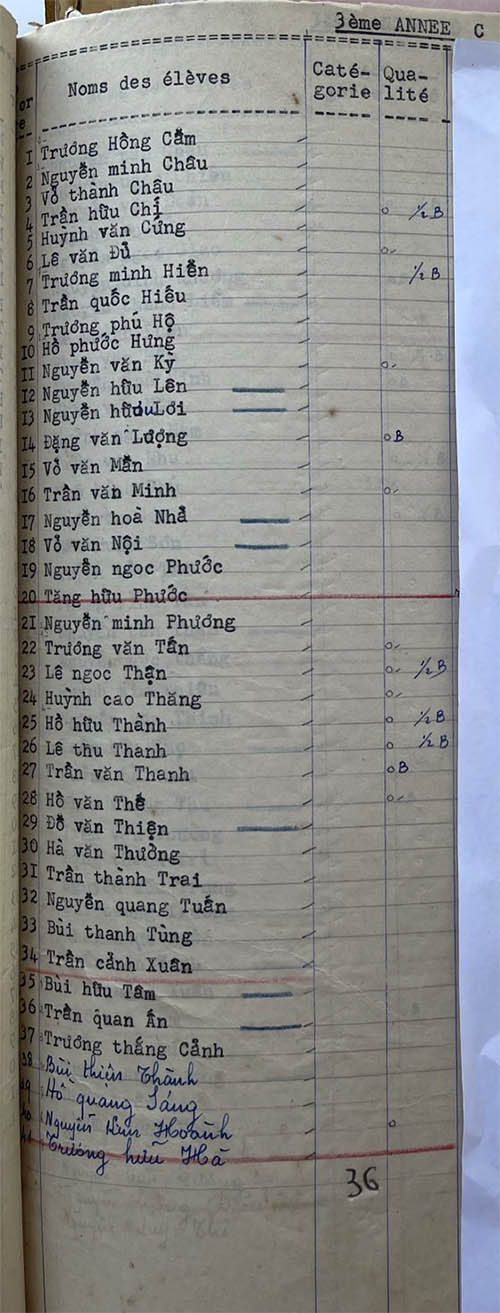 3ème ANNEE C
or Noms des élèves Caté-gorie Qua-lité
1 Trương Hồng Cẩm
2 Nguyễn minh Châu
3 Võ thành Châu
4 Trần hữu Chí o 1/2 B
5 Huỳnh văn Cứng
6 Lê văn Đủ o
7 Trương minh Hiền 1/2 B
8 Trần quốc Hiếu
9 Trương phú Hộ
10 Hồ phước Hưng
11 Nguyễn văn Kỳ o
12 Nguyễn hữu Lên
13 Nguyễn hữu Lợi
14 Đặng văn Lượng o B
15 Võ văn Mẫn
16 Trần văn Minh o
17 Nguyễn hoà Nhã
18 Võ văn Nội
19 Nguyễn ngọc Phước
20 Tăng hữu Phước
21 Nguyễn minh Phương
22 Trương văn Tấn o
23 Lê ngọc Thận o 1/2 B
24 Huỳnh cao Thăng o
25 Hồ hữu Thành o 1/2 B
26 Lê thu Thanh o 1/2 B
27 Trần văn Thanh o B
28 Hồ văn Thế o
29 Đỗ văn Thiện
30 Hà văn Thưởng
31 Trần thành Trai
32 Nguyễn quang Tuấn
33 Bùi thanh Tùng
34 Trần cảnh Xuân
35 Bùi hữu Tâm
36 Trần quan Ấn
37 Trương thắng Cảnh
38 Bùi thiên Thành
39 Hồ quang Sáng
40 Nguyễn Hoành o
41 Trương hữu Hà
36